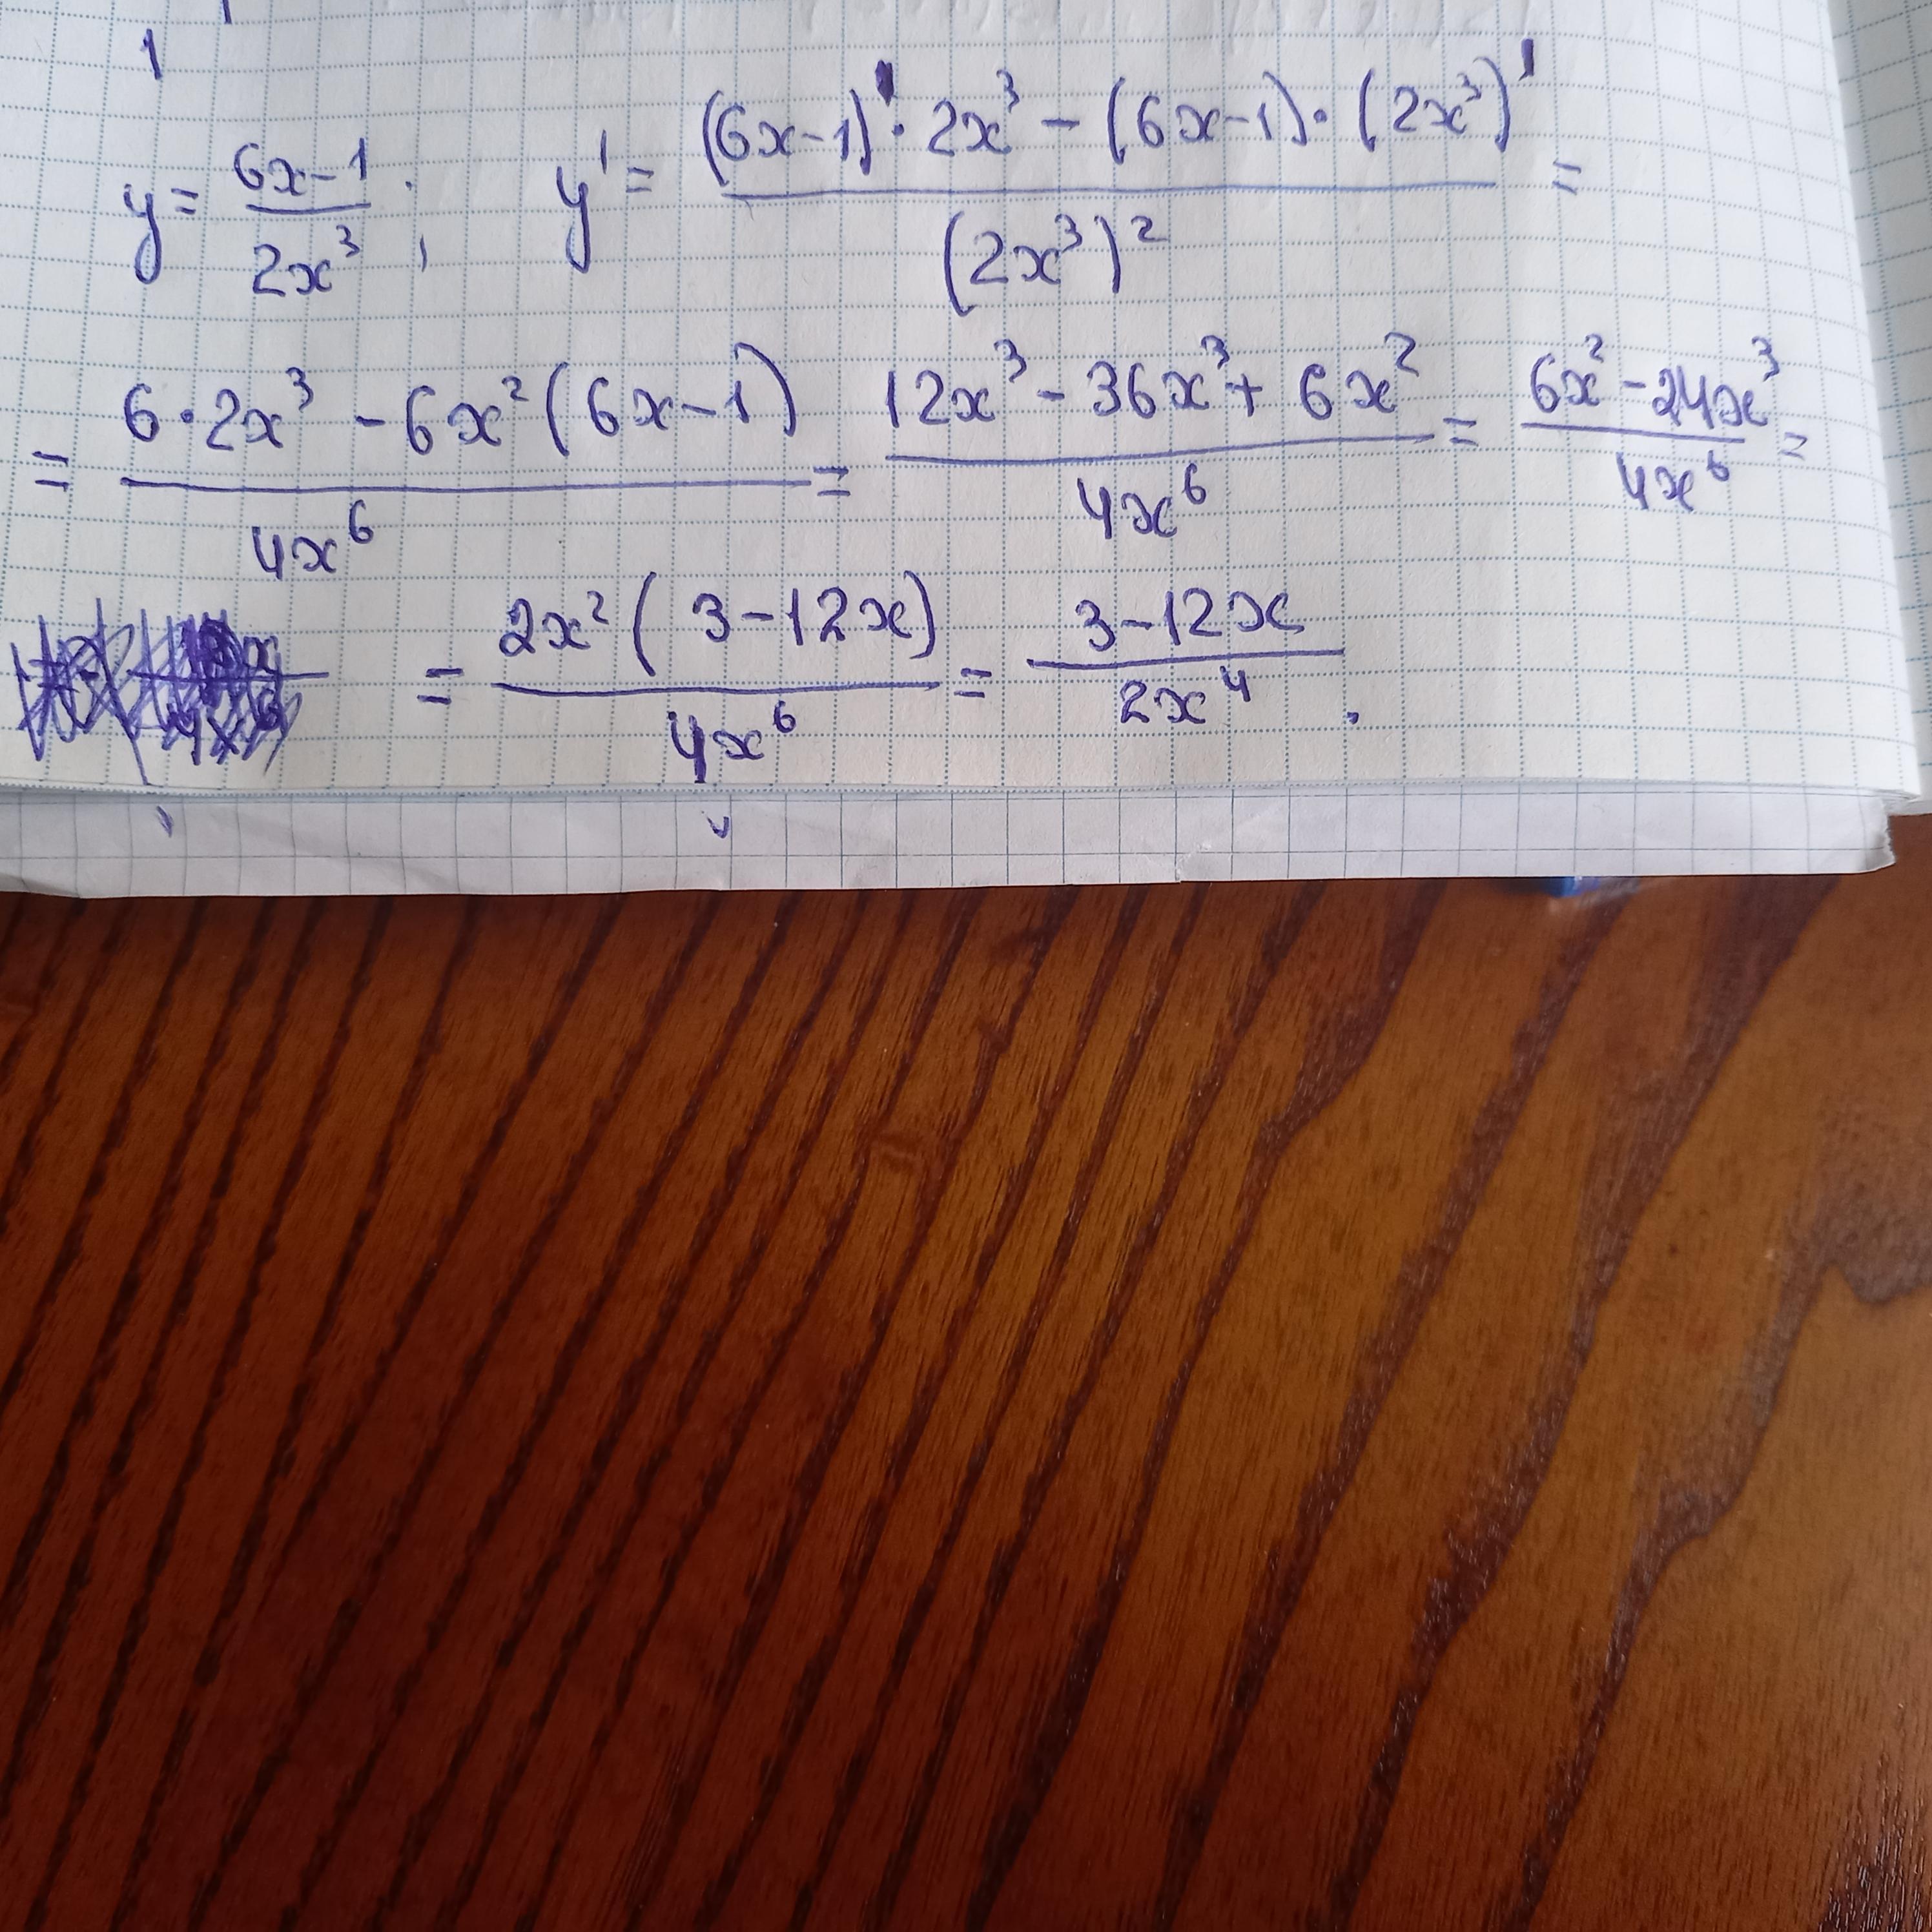 y = (6x-1)/(2x³); y' = ((6x-1)' · 2x³ - (6x-1) · (2x³)')/((2x³)²) =
= (6 · 2x³ - 6x²(6x-1))/(4x⁶) = (12x³ - 36x³ + 6x²)/(4x⁶) = (6x² - 24x³)/(4x⁶) =
= (2x²(3-12x))/(4x⁶) = (3-12x)/(2x⁴).